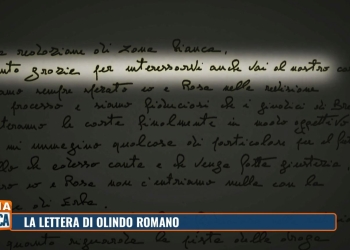 la redazione di Zona Bianca.
grazie per interessarvi anche voi al nostro
sempre sperato io e Rosa nella revisione
processo e siamo fiduciosi che i giudici di
le carte finalmente in modo oggettivo
mi immagino qualcosa di particolare per il
adesso conta è che venga fatta giustizia
io e Rosa non c'entriamo nulla con la
di Erba.
riguarda la pista della droga
LA LETTERA DI OLINDO ROMANO